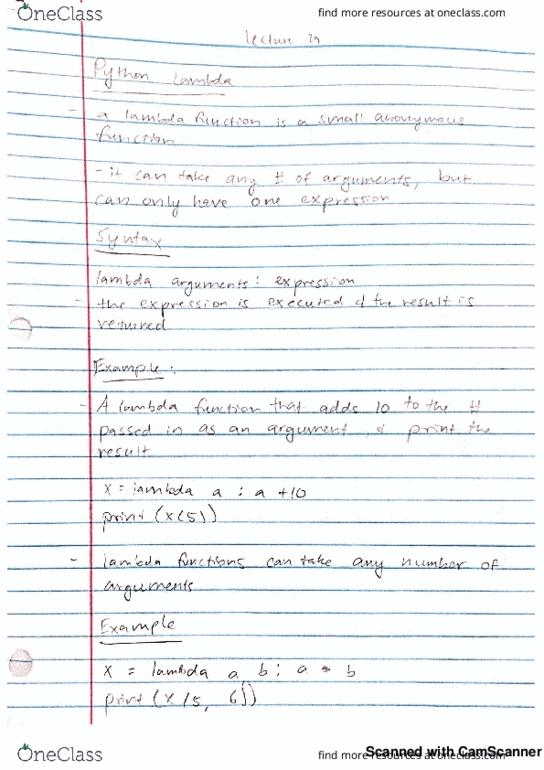 OneClass
find more resources at oneclass.com
Lecture 29
Python Lambda
- a lambda function is a small anonymous
function
- it can take any # of arguments, but
can only have one expression
Syntax
lambda arguments : expression
- the expression is executed & the result is
returned
Example :
- A lambda function that adds 10 to the #
passed in as an argument, & print the
result
x = lambda a : a + 10
print (x(5))
- lambda functions can take any number of
arguments
Example
x = lambda a, b : a * b
print (x(5, 6))
OneClass
find more resources at oneclass.com
Scanned with CamScanner